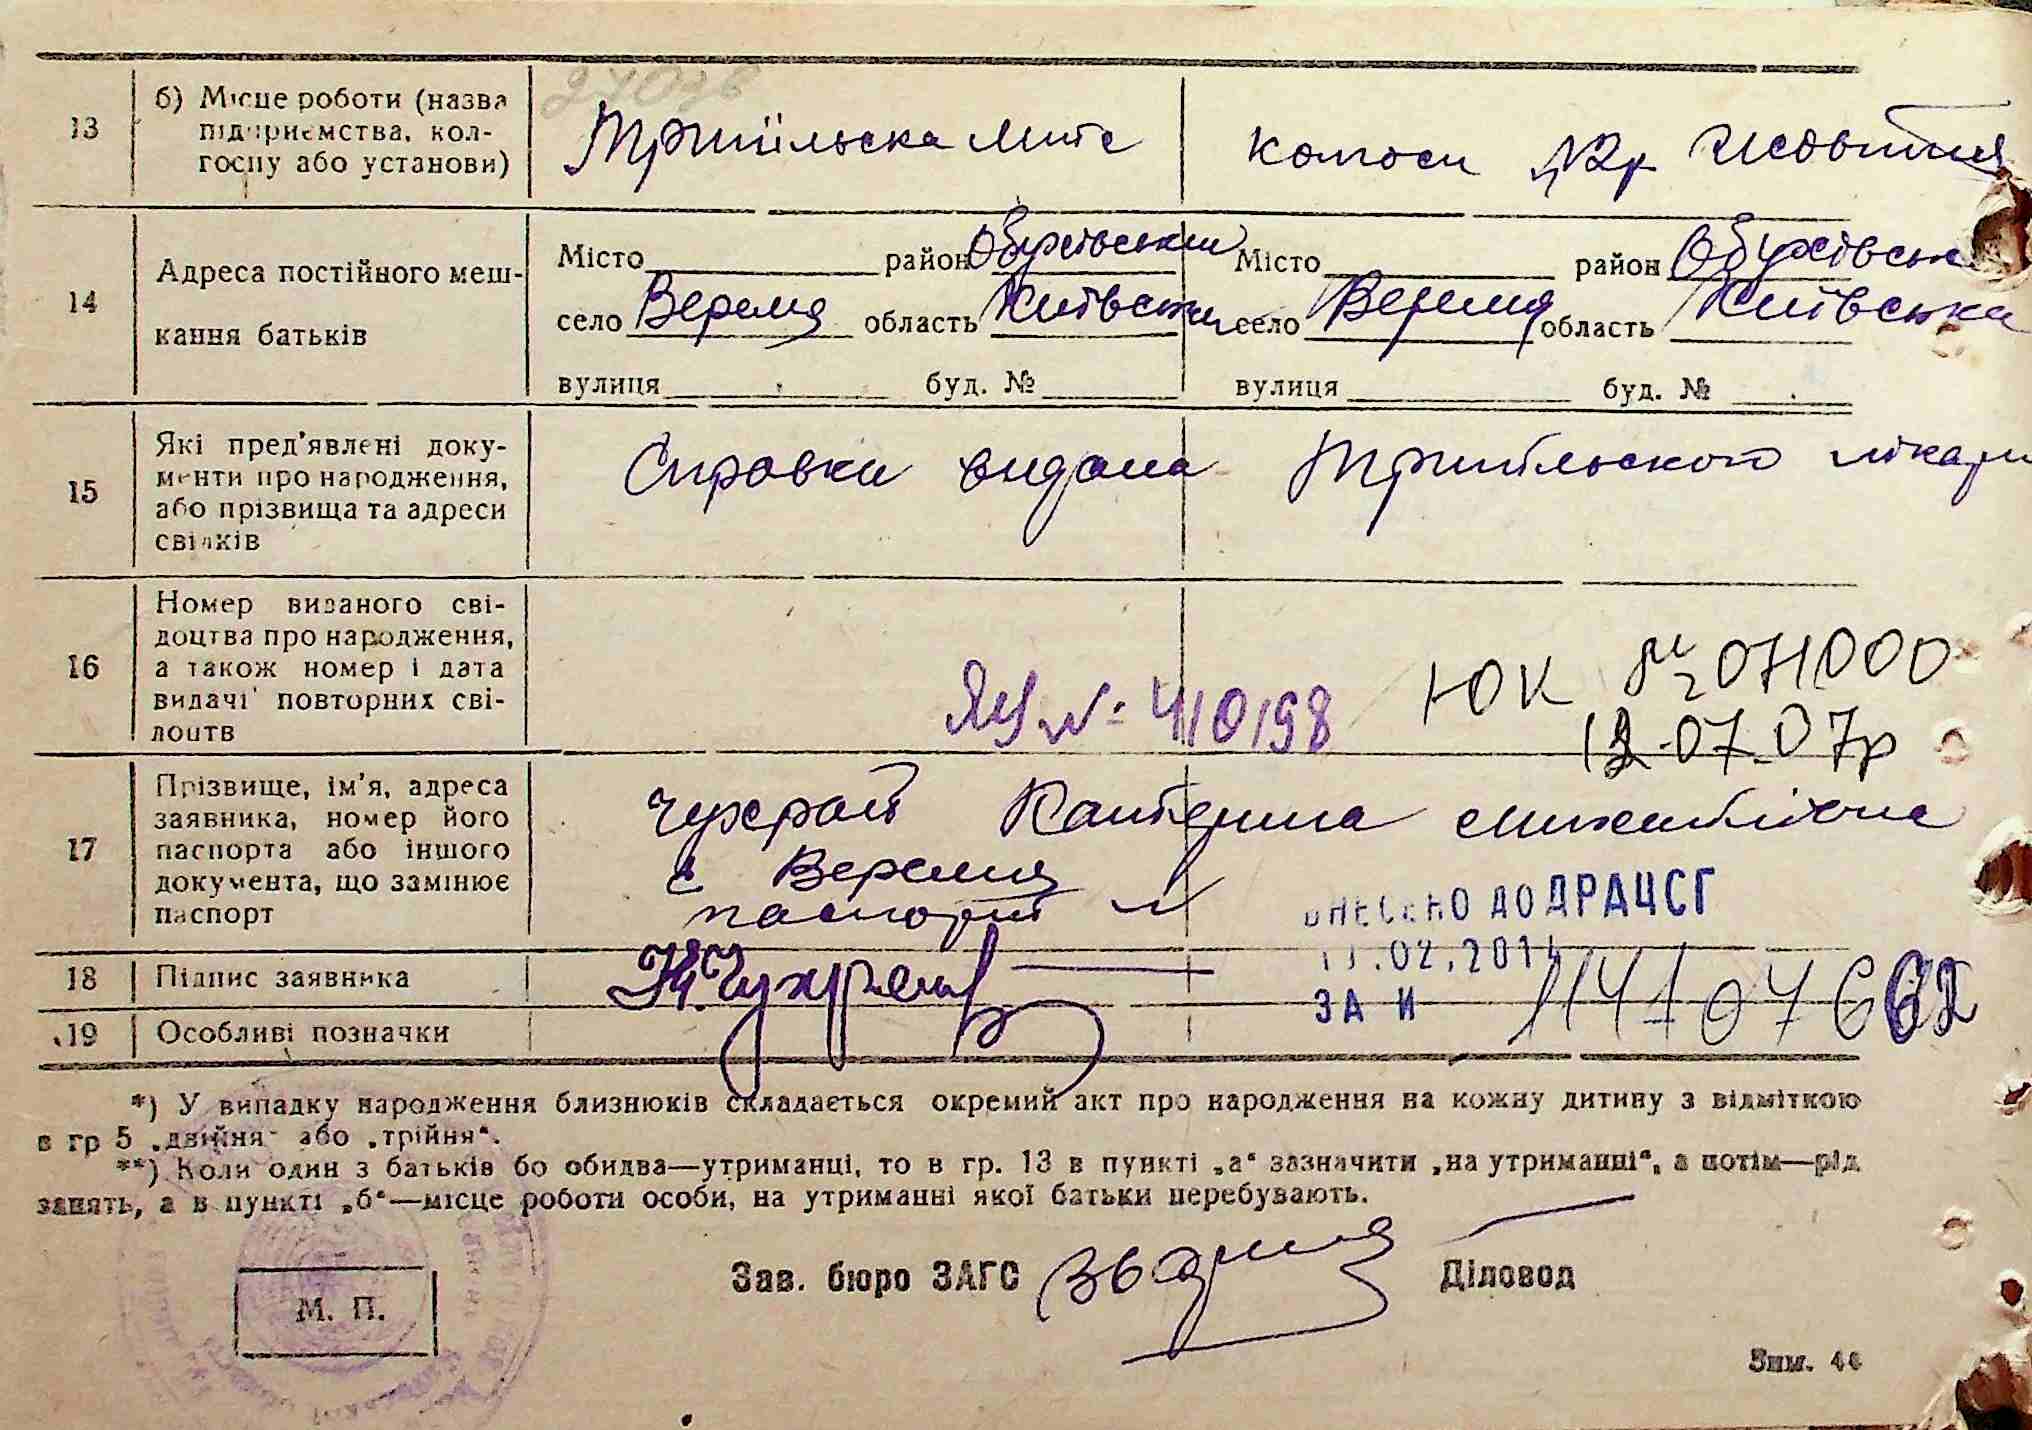 13
б) Місце роботи (назва
підприємства, кол-
госпу або установи)
Трипільска
колгосп Жовтня
14
Адреса постійного меш-
кання батьків
Місто район Обухівський
село Веремя область Київська
вулиця буд. №
Місто район Обухівськ
село Веремя область Київська
вулиця буд. №
15
Які пред'явлені доку-
менти про народження,
або прізвища та адреси
свідків
Справки видана Трипільского лікар
16
Номер виданого сві-
доцтва про народження,
а також номер і дата
видачі повторних сві-
доцтв
ЯУ № 410198
ЮК № 071000
12.07.07р
17
Прізвище, ім'я, адреса
заявника, номер його
паспорта або іншого
документа, що замінює
паспорт
Чухрай Катерина
с Веремя
паспорт
ВНЕСЕНО ДО ДРАЦСГ
.02.201
ЗА №
18
Підпис заявника
19
Особливі позначки
*) У випадку народження близнюків складається окремий акт про народження на кожну дитину з відміткою
в гр 5 „двійня" або „трійня".
**) Коли один з батьків бо обидва—утриманці, то в гр. 13 в пункті „а" зазначити „на утриманні", а потім—рід
занять, а в пункті „б"—місце роботи особи, на утриманні якої батьки перебувають.
Зав. бюро ЗАГС
Діловод
М. П.